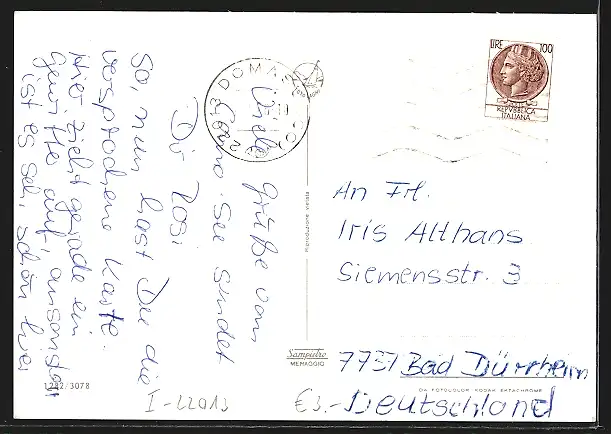 So, nun hast Du die
versprochene Karte.
Hier zieht gerade ein
Gewitter auf, ansonsten
ist es sehr schön hier
Viele Grüße vom
Como-See sendet
Dir Rosi
DOMASO
(CO)
LIRE 100
REPVBBLICA
ITALIANA
An Frl.
Iris Althans
Siemensstr. 3
7737 Bad Dürrheim
Deutschland
Riproduzione vietata
Sampietro
MENAGGIO
DA FOTOCOLOR KODAK EKTACHROME
1282/3078
I-22013
€3.-